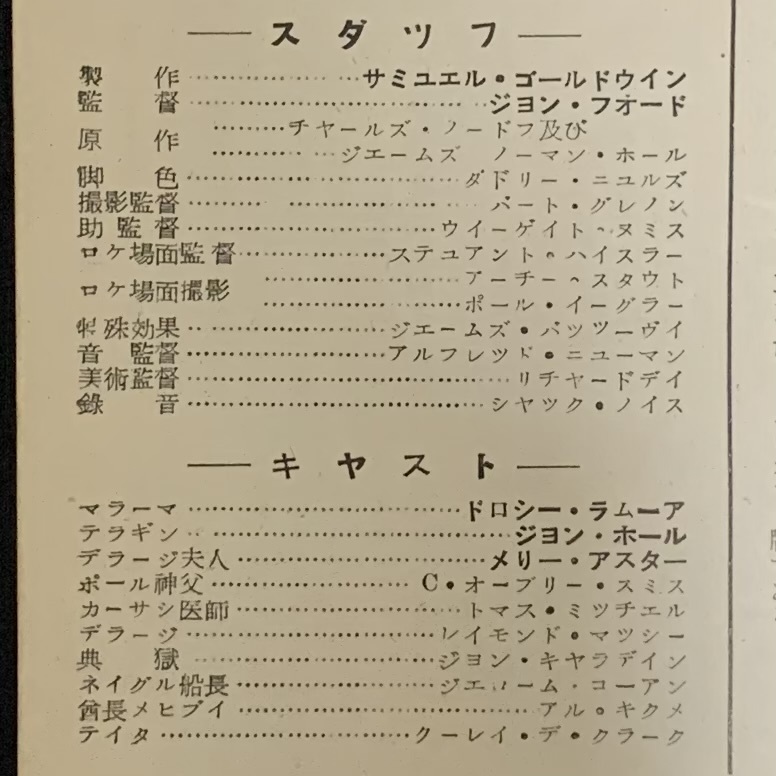 スダツフ
製作 サミユエル・ゴールドウイン
監督 ジヨン・フオード
原作 チヤールズ・ノードフ及び
ジエームズ ノーマン・ホール
脚色 ダドリー・ニユルズ
撮影監督 バート・グレノン
助監督 ウイーゲイト・ヌミス
ロケ場面監督 ステユアント・ハイスラー
ロケ場面撮影 アーチー・スタウト
ポール・イーグラー
特殊効果 ジエームズ・バツツーヴイ
音監督 アルフレツド・ニユーマン
美術監督 リチヤードデイ
錄音 シヤツク・ノイス
キヤスト
マラーマ ドロシー・ラムーア
テラギン ジヨン・ホール
デラージ夫人 メリー・アスター
ポール神父 C・オーブリー・スミス
カーサシ医師 トマス・ミツチエル
デラージ レイモンド・マツシー
典獄 ジヨン・キヤラデイン
ネイグル船長 ジエローム・コーアン
酋長メヒブイ アル・キクメ
テイタ クーレイ・デ・クラーク